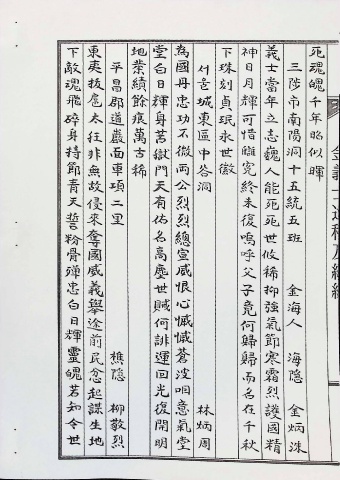 死魂魄千年昭似暉
三陟市南陽洞十五統五班 金海人 海隱 金炳洙
義士當年立志巍人能死死世攸稀抑強氣節寒霜烈護國精
神日月輝可惜雖寃終未復嗚呼父子竟何歸歸而名在千秋
下珠刻貞珉永世徽
서울城東區中谷洞 林炳周
為國丹忠功不微兩公烈烈總宣威恨心慽慽蒼波咽意氣堂
堂白日輝身苦獄門天有佑名高塵世賊何誹運回光復開明
地業績餘痕萬古稀
平昌郡道巖面車項二里 樵隱 柳敬烈
東夷拔扈太狂非無故侵來奪國威義舉途前民忿起謀生地
下敵魂飛碎身持節青天誓粉骨殫忠白日輝靈魄若知今世